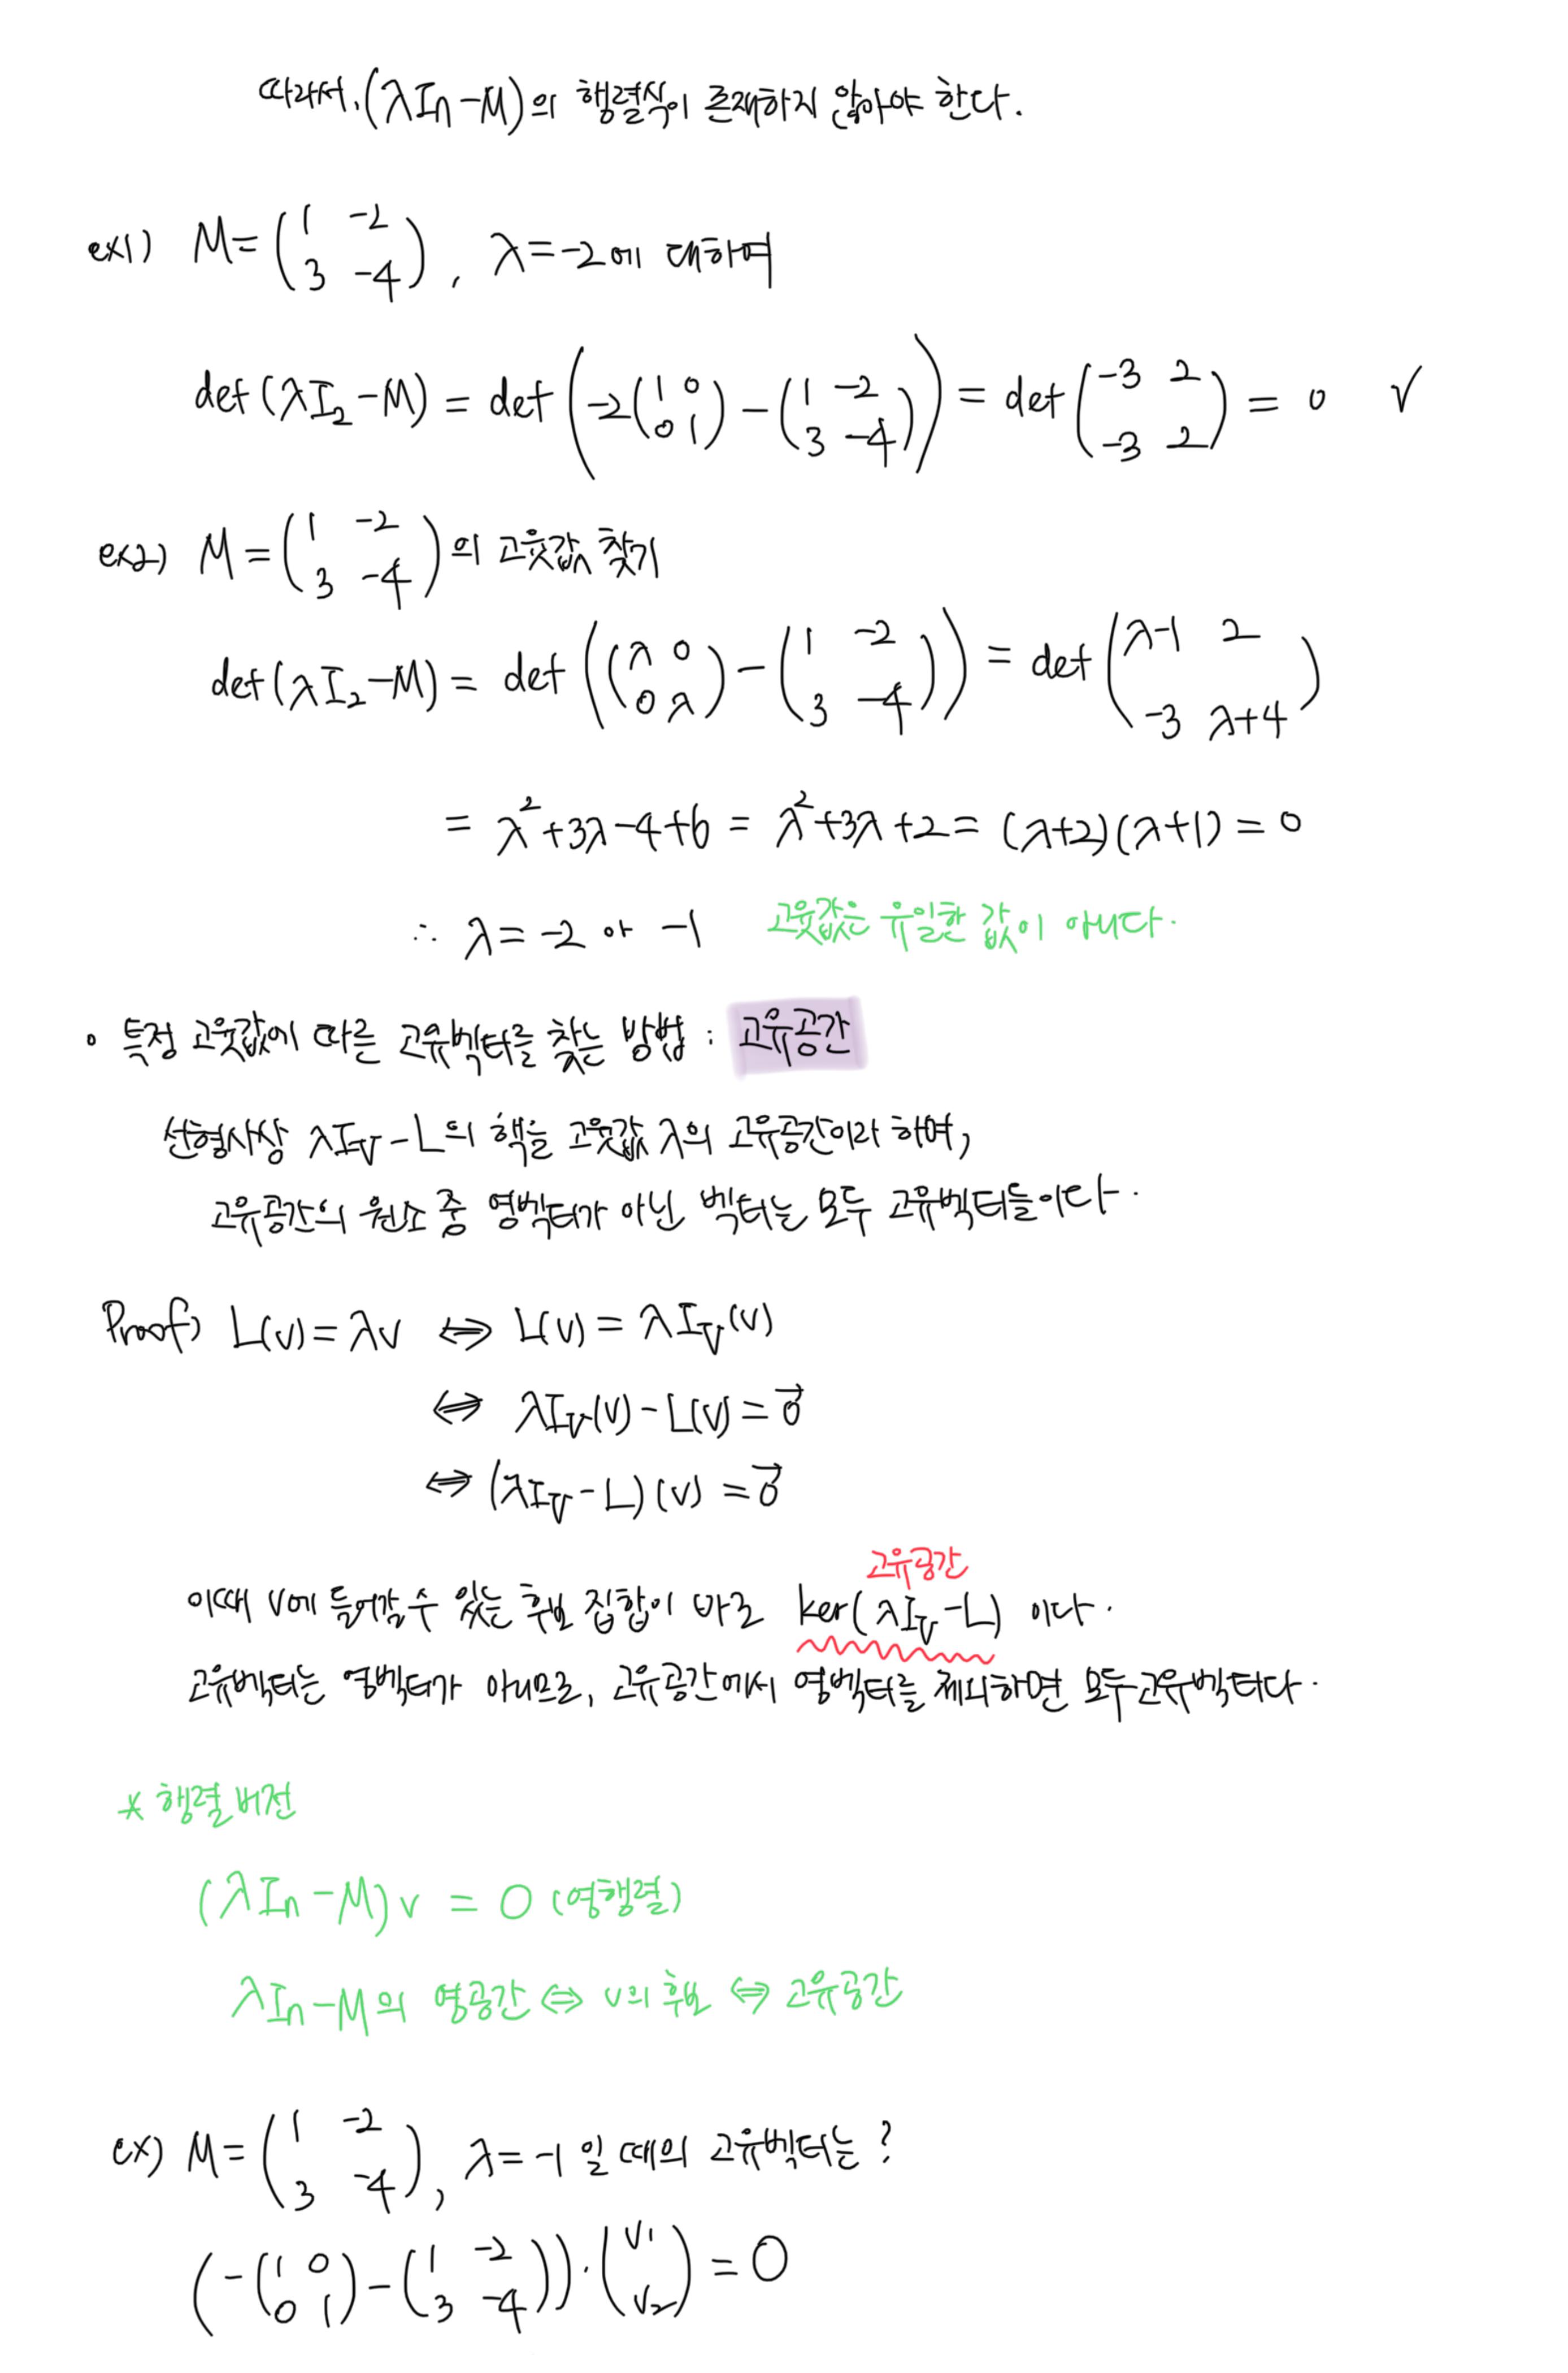 따라서, (λIn-M)의 행렬식이 존재하지 않아야 한다.
ex1) M= (1 -2 / 3 -4), λ=-2에 대하여
det(λI₂-M) = det(-2(1 0 / 0 1) - (1 -2 / 3 -4)) = det(-3 2 / -3 2) = 0 √
ex2) M = (1 -2 / 3 -4)의 고윳값 찾기
det(λI₂-M) = det((λ 0 / 0 λ) - (1 -2 / 3 -4)) = det(λ-1 2 / -3 λ+4)
= λ²+3λ-4+6 = λ²+3λ+2 = (λ+2)(λ+1) = 0
∴ λ = -2 아 -1 고윳값은 유일한 값이 아니다.
∘ 특정 고윳값에 따른 고유벡터를 찾는 방법 : 고유공간
선형사상 λI_V - L의 핵을 고윳값 λ의 고유공간이라 하며,
고유공간의 원소 중 영벡터가 아닌 벡터는 모두 고유벡터들이다.
Proof) L(v) = λv ⇔ L(v) = λI_V(v)
⇔ λI_V(v) - L(v) = 0⃗
⇔ (λI_V - L)(v) = 0⃗
고유공간
이때 v에 들어갈 수 있는 후보 집합이 바로 ker(λI_V - L) 이다.
고유벡터는 영벡터가 아니므로, 고유공간에서 영벡터를 제외하면 모두 고유벡터다.
* 행렬버전
(λIn - M)v = O (영행렬)
λIn - M의 영공간 ⇔ v의 후보 ⇔ 고유공간
ex) M = (1 -2 / 3 -4), λ = -1 일 때의 고유벡터는?
(-(1 0 / 0 1) - (1 -2 / 3 -4)) · (v₁ / v₂) = O